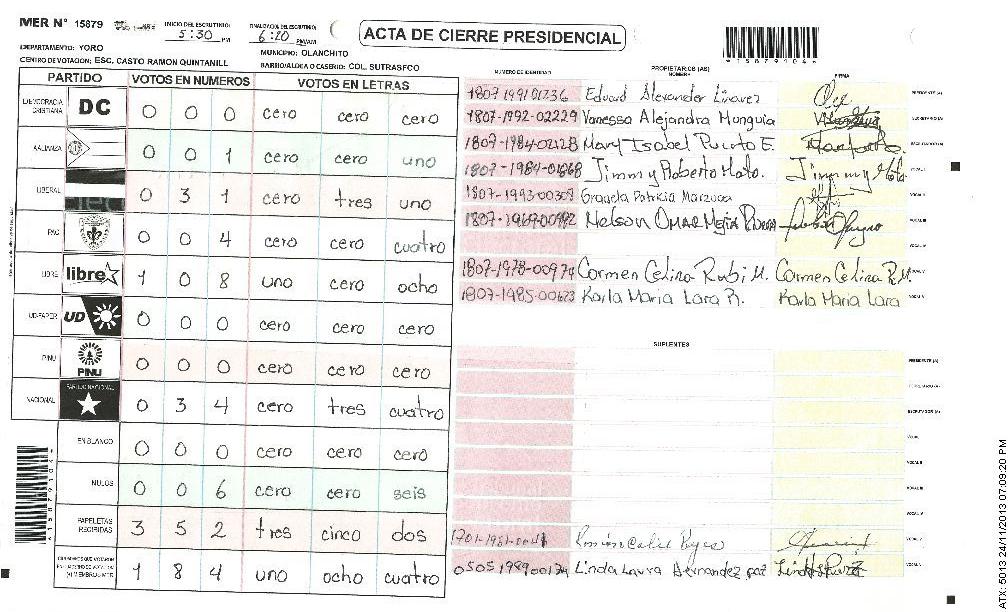 MER N° 15879 INICIO DEL ESCRUTINIO: 5:30 PM FINALIZACION DEL ESCRUTINIO: 6:20 PM/AM
ACTA DE CIERRE PRESIDENCIAL
*158791046*
DEPARTAMENTO: YORO MUNICIPIO: OLANCHITO
CENTRO DE VOTACION: ESC. CASTO RAMON QUINTANILL BARRIO/ALDEA O CASERIO: COL. SUTRASFCO
PARTIDO VOTOS EN NUMEROS VOTOS EN LETRAS
DEMOCRACIA CRISTIANA DC 0 0 0 cero cero cero
AALIANZA 0 0 1 cero cero uno
LIBERAL 0 3 1 cero tres uno
PAC 0 0 4 cero cero cuatro
LIBRE libre 1 0 8 uno cero ocho
UD-FAPER UD 0 0 0 cero cero cero
PINU PINU 0 0 0 cero cero cero
NACIONAL PARTIDO NACIONAL 0 3 4 cero tres cuatro
EN BLANCO 0 0 0 cero cero cero
NULOS 0 0 6 cero cero seis
PAPELETAS RECIBIDAS 3 5 2 tres cinco dos
1 8 4 uno ocho cuatro
NUMERO DE IDENTIDAD PROPIETARIOS (AS) NOMBRE FIRMA
Eduard Alexander Linarez PRESIDENTE (A)
1807-1992-02229 Vanessa Alejandra Munguia SECRETARIO (A)
1807-1984-02128 Mary Isabel Puerto E. ESCRUTADOR (A)
Jimmy Roberto Mato. Jimmy Mato. VOCAL I
Graciela Patricia Marzuca VOCAL II
Nelson Omar Mejia VOCAL III
VOCAL IV
1807-1978-00974 Carmen Celina Rubi M. Carmen Celina R.M. VOCAL V
1807-1985-00623 Karla Maria Lara R. Karla Maria Lara
SUPLENTES
PRESIDENTE (A)
SECRETARIO (A)
ESCRUTADOR (A)
VOCAL I
VOCAL II
VOCAL III
VOCAL IV
VOCAL V
Linda Laura Hernandez paz
ATX: 5013 24/11/2013 07:09:20 PM